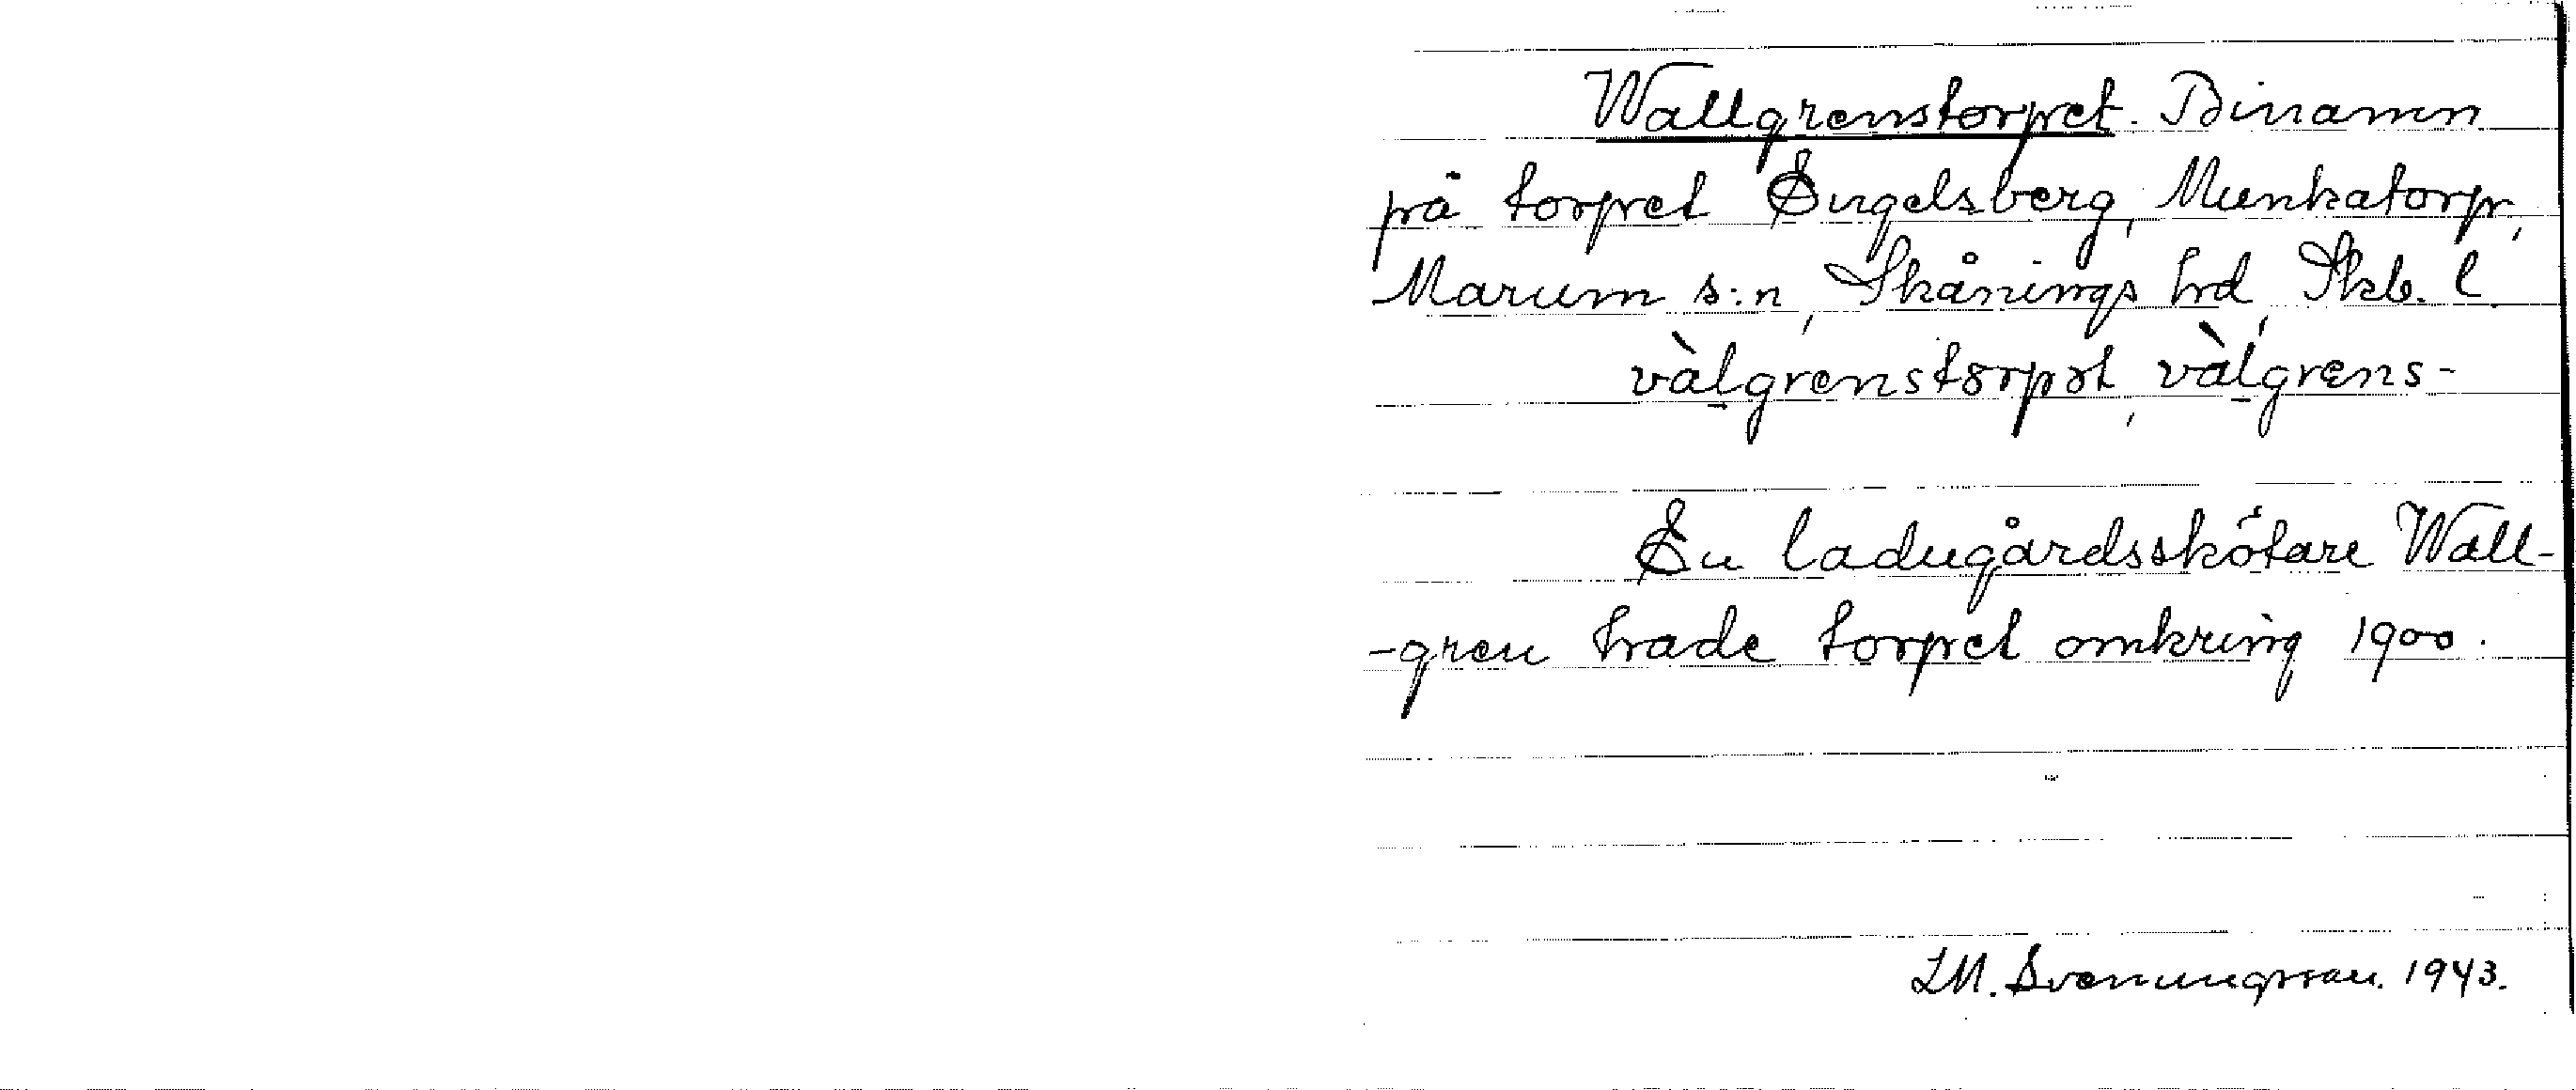 Wallgrenstorpet. Binamn
på torpet Engelsberg, Munkatorp,
Marum s:n, Skånings hd, Skb. l.
vàl̲grenstorpət, vàl̲grens-
En ladugårdsskötare Wall-
-gren hade torpet omkring 1900.
LM. Svenungsson. 1943.